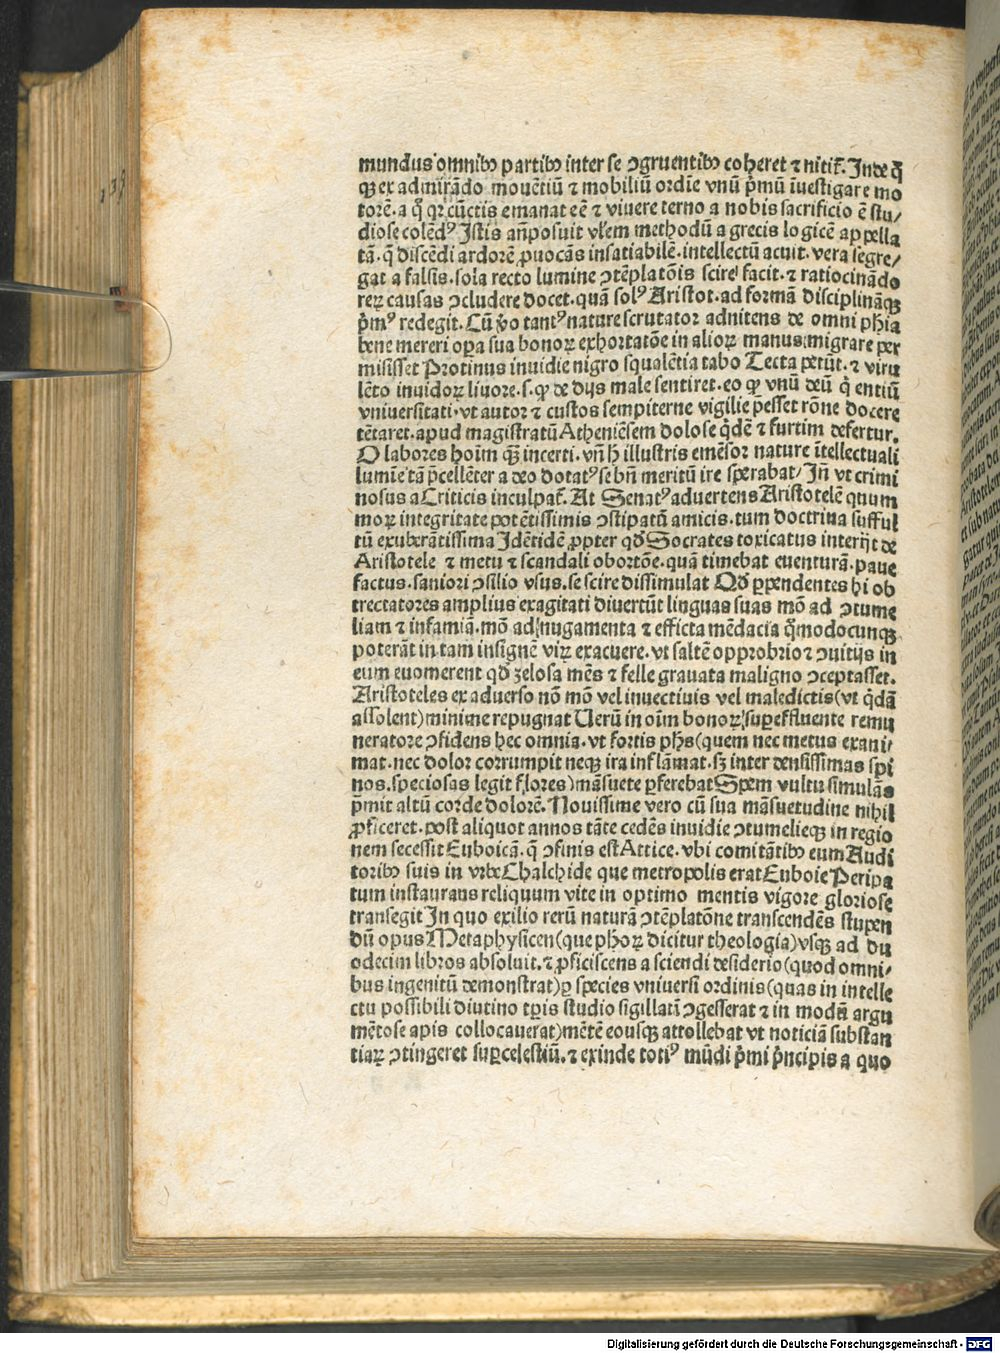 mundus omnibꝰ partibꝰ inter se ↄgruentibꝰ coheret ⁊ nitiť. Inde q̃
qꝫ ex admirãdo mouẽtiũ ⁊ mobiliũ ordĩe vnũ p̃mũ ĩuestigare mo
torẽ. a q̊ qꝛ cũctis emanat eẽ ⁊ viuere terno a nobis sacrificio ẽ stu/
diose colẽdꝰ Istis añposuit vľem methodũ a grecis logicẽ appella
tã. q̃ discẽdi ardorẽ ꝓuocãs insatiabilẽ. intellectũ acuit. vera segre/
gat a falsis. sola recto lumine ↄtẽplatõis scire facit. ⁊ ratiocinãdo
reꝝ causas ↄcludere docet. quã solꝰ Aristot. ad formã disciplinãqꝫ
p̃mꝰ redegit. Cũ ṽo tantꝰ nature scrutator adnitens de omni phia
bene mereri oꝑa sua bonoꝝ exhortatõe in alioꝝ manus migrare per
misisset Protinus inuidie nigro squalẽtia tabo Tecta petũt. ⁊ viru
lẽto inuidoꝝ liuore. s. ꝙ de dijs male sentiret. eo ꝙ vnũ deũ q̇ entiũ
vniuersitati. vt autor ⁊ custos sempiterne vigilie p̃esset rõne docere
tẽtaret. apud magistratũ Atheniẽsem dolose q̇dẽ ⁊ furtim defertur.
O labores hoĩm qꝫ̃ incerti. vñ h̃ illustris emẽsor nature ĩtellectuali
lumĩe tã p̃cellẽter a deo dotatꝰ se bñ meritũ ire sperabat/ Iñ vt crimi
nosus a Criticis inculpať. At Senatꝰ aduertens Aristotelẽ quum
moꝝ integritate potẽtissimis ↄstipatũ amicis. tum doctrina sufful
tũ exuberãtissima Idẽtidẽ ꝓpter qđ Socrates toxicatus interijt de
Aristotele ⁊ metu ⁊ scandali obortõe. quã timebat euenturã. paue
factus. saniori ↄsilio vsus. se scire dissimulat Qđ ꝑpendentes hi ob
trectatores amplius exagitati diuertũt linguas suas mõ ad ↄtume
liam ⁊ infamiã. mõ ad nugamenta ⁊ efficta mẽdacia q̃modocunqꝫ
poterãt in tam insignẽ viꝝ exacuere. vt saltẽ opprobrio ⁊ ↄuitijs in
eum euomerent qđ zelosa mẽs ⁊ felle grauata maligno ↄceptasset.
Aristoteles ex aduerso nõ mõ vel inuectiuis vel maledictis (vt q̇dã
assolent) minime repugnat Uerũ in oĩm bonoꝝ suꝑeffluente remu
neratore ↄfidens hec omnia. vt fortis ph̃s (quem nec metus exani/
mat. nec dolor corrumpit neqꝫ ira inflãmat. sꝫ inter densissimas spi
nos. speciosas legit flores) mãsuete ꝑferebat Spem vultu simulãs
p̃mit altũ corde dolorẽ. Nouissime vero cũ sua mãsuetudine nihil
ꝓficeret. post aliquot annos tãte cedẽs inuidie ↄtumelieqꝫ in regio
nem secessit Euboicã. q̃ ↄfinis est Attice. vbi comitãtibꝰ eum Audi
toribꝰ suis in vrbe Chalchide que metropolis erat Euboie Peripa
tum instaurans reliquum vite in optimo mentis vigore gloriose
transegit In quo exilio rerũ naturã ↄtẽplatõne transcendẽs stupen
dũ opus Metaphysicen (que phoꝝ dicitur theologia) vsqꝫ ad du
odecim libros absoluit. ⁊ ꝓficiscens a sciendi desiderio (quod omni/
bus ingenitũ demonstrat) ꝑ species vniuersi ordinis (quas in intelle
ctu possibili diutino tꝑis studio sigillatĩ ↄgesserat ⁊ in modũ argu
mẽtose apis collocauerat) mẽtẽ eousqꝫ attollebat vt noticiã substan
tiaꝝ ↄtingeret suꝑcelestiũ. ⁊ exinde totiꝰ mũdi p̃mi p̃ncipis a quo
Digitalisierung gefördert durch die Deutsche Forschungsgemeinschaft - DFG